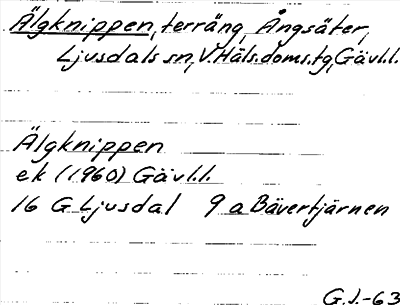 Älgknippen, terräng, Ångsäter,
Ljusdals sn, V. Häls. doms. tg, Gävl.l.
Älgknippen
ek (1960) Gävl.l.
16 G Ljusdal 9 a Bävertjärnen
G.J.-63